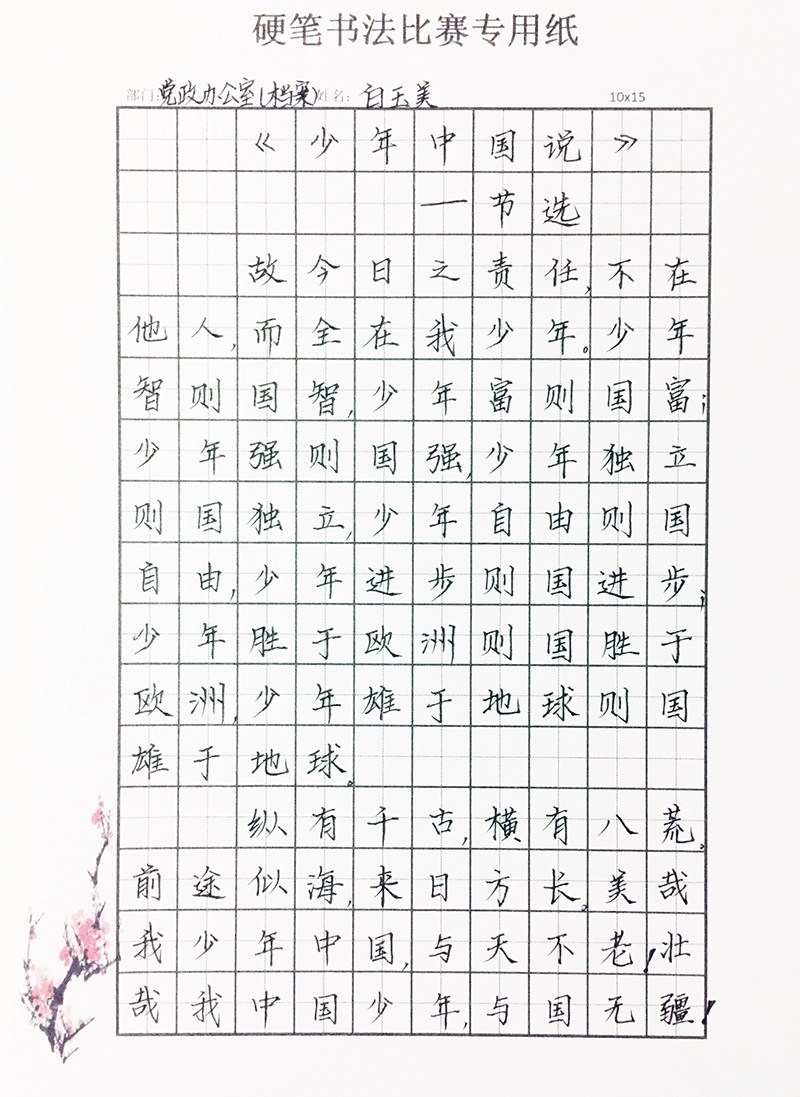 硬笔书法比赛专用纸
部门:党政办公室(档案)姓名:白玉美 10x15
《少年中国说》
一节选
故今日之责任,不在
他人,而全在我少年。少年
智则国智,少年富则国富;
少年强则国强,少年独立
则国独立,少年自由则国
自由,少年进步则国进步;
少年胜于欧洲则国胜于
欧洲,少年雄于地球则国
雄于地球。
纵有千古,横有八荒。
前途似海,来日方长。美哉
我少年中国,与天不老!壮
哉我中国少年,与国无疆!